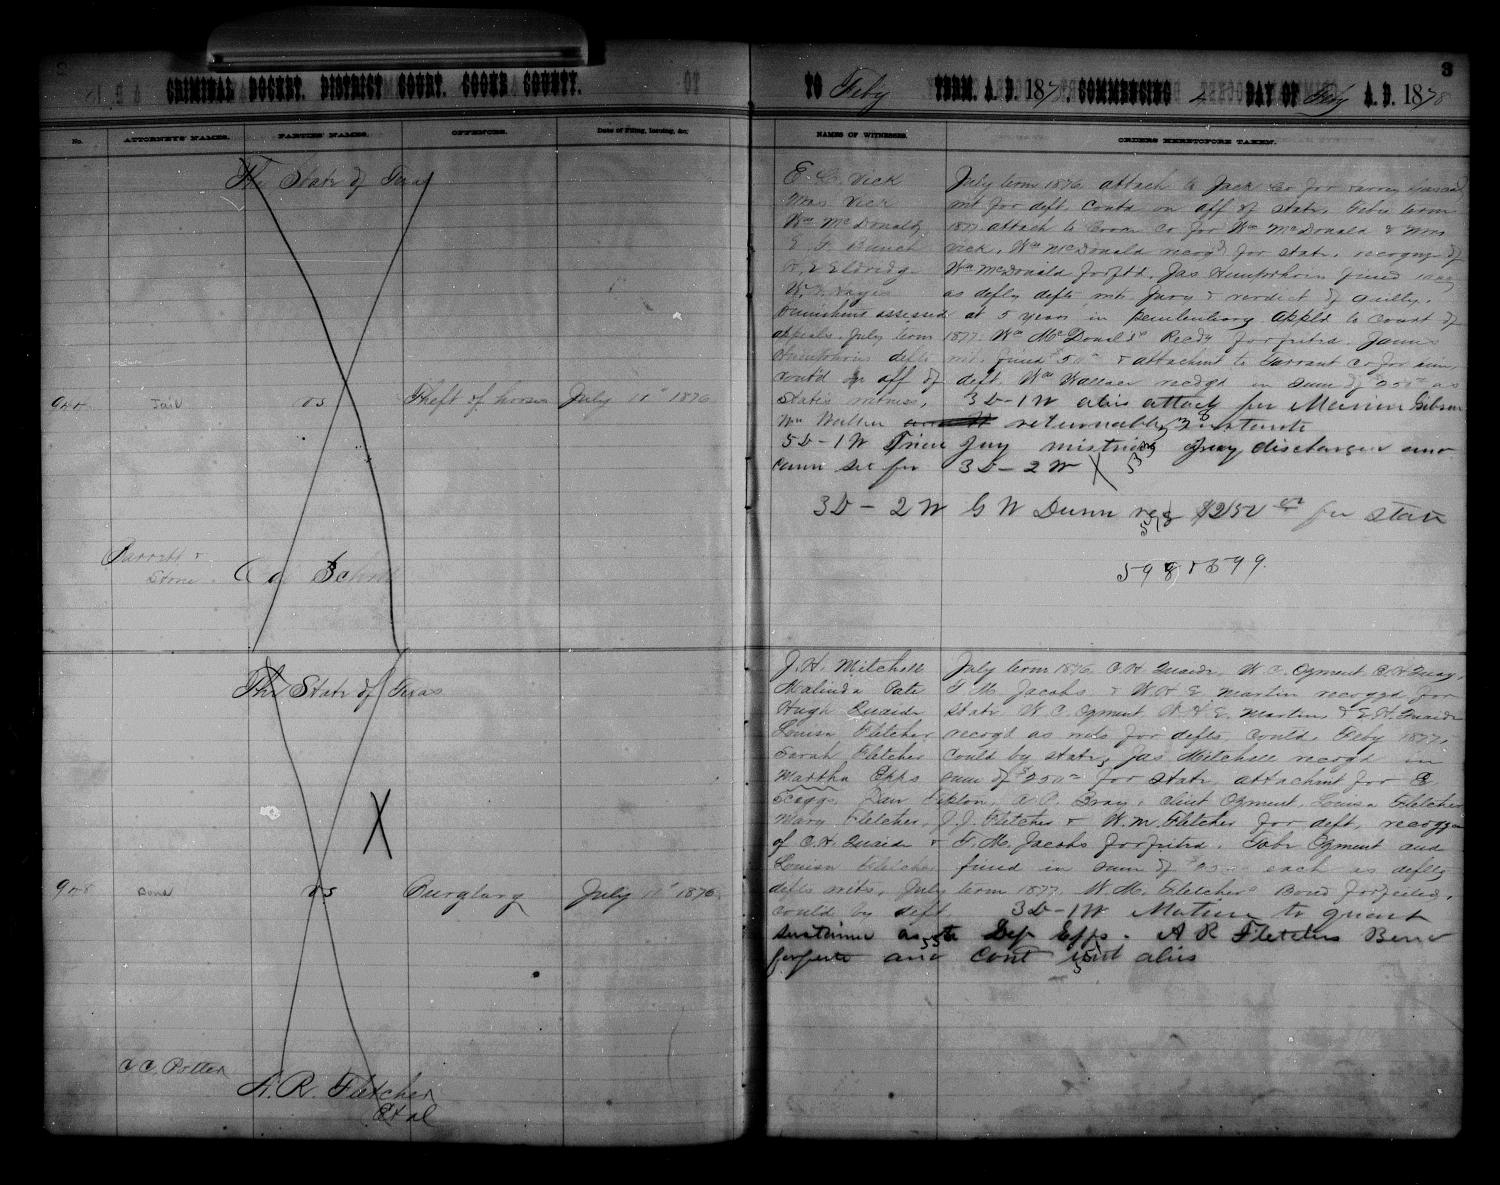 CRIMINAL DOCKET, DISTRICT COURT, COOKE COUNTY.
No. ATTORNEYS' NAMES. PARTIES' NAMES. OFFENCES. Date of Filing, Issuing, &c.
The State of Texas
944 Jail vs Theft of horses July 11" 1876
Barrett &
Stone
The State of Texas
948 Bond vs Burglary July 11" 1876
C C Potter
A. R. Fletcher
Et al
3
TO Feby TERM, A. D. 187 . COMMENCING 4 DAY OF Feby A. D. 1878
NAMES OF WITNESSES. ORDERS HERETOFORE TAKEN.
E. C. Vick July term 1876 attach to Jack Co for
Mrs Vick wit for deft. Contd on aff of state. Feby term
Wm McDonald 1877 attach to Cooke Co for Wm McDonald & Mrs
E. F. Bunch Vick. Wm McDonald recogd for state. recogz of
H, E Eldridge Wm McDonald forftd. Jas Humphries fined
W. Hayes as deflg defts wit. Jury & verdict of guilty.
Punishment assessed at 5 years in penitentiary appld to court of
appeals. July term 1877. Wm McDonald's Recdz forfeited. James
Humphries defts wit. fined $50 & attachment to Tarrant Co for him,
contd on aff of deft. Wm Wallace recogd in sum of $250 as
States witness, 3D-1W alias attach for Marion Gibson
Wm Wallace returnable instante
5D-1W Tried Jury mistrial Jury discharged and
cause set for 3D-2W X
3D-2W G W Dunn rec $250 for state
598 & 699.
J. H. Mitchell July term 1876 C H Quaide, W. C. Ozment,
Malinda Pate T. M. Jacobs & W. H E Martin recogzd for
Hugh Quaide state W C Ozment W. H. E. Martin, & E. H. Quaide
Louisa Fletcher recogd as wits for defts, contd, Feby 1877,
Sarah Fletcher Contd by state, Jas Mitchell recogd in
Martha Epps sum of $250 for state, attachment for
Scaggs, Tipton, A. C. Bray, Clint Ozment, Louisa Fletcher
Mary Fletcher, J. J. Fletcher & W. M. Fletcher for deft, recogzn
of C. H. Quaide & T. M. Jacobs forfeited. Tobe Ozment and
Louisa Fletcher fined in sum of each as deflg
defts wits, July term 1877. W. M. Fletcher's Bond forfeited,
contd by deft. 3D-1W Motion to quash
sustained as to Epps. A R Fletchers Bond
forfeited and Cont alias